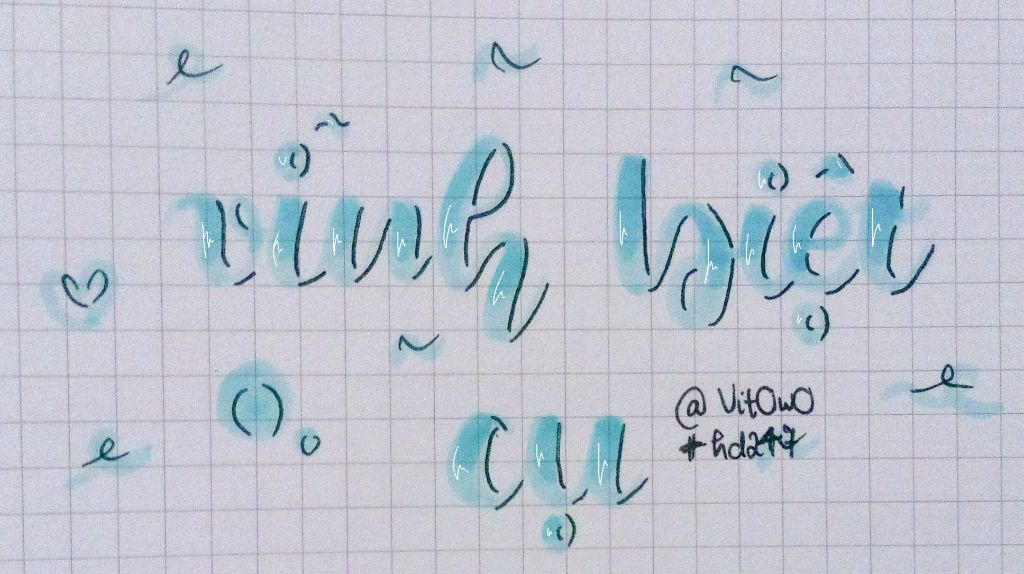 vĩnh biệt
cụ
@VitOwO
#hd247